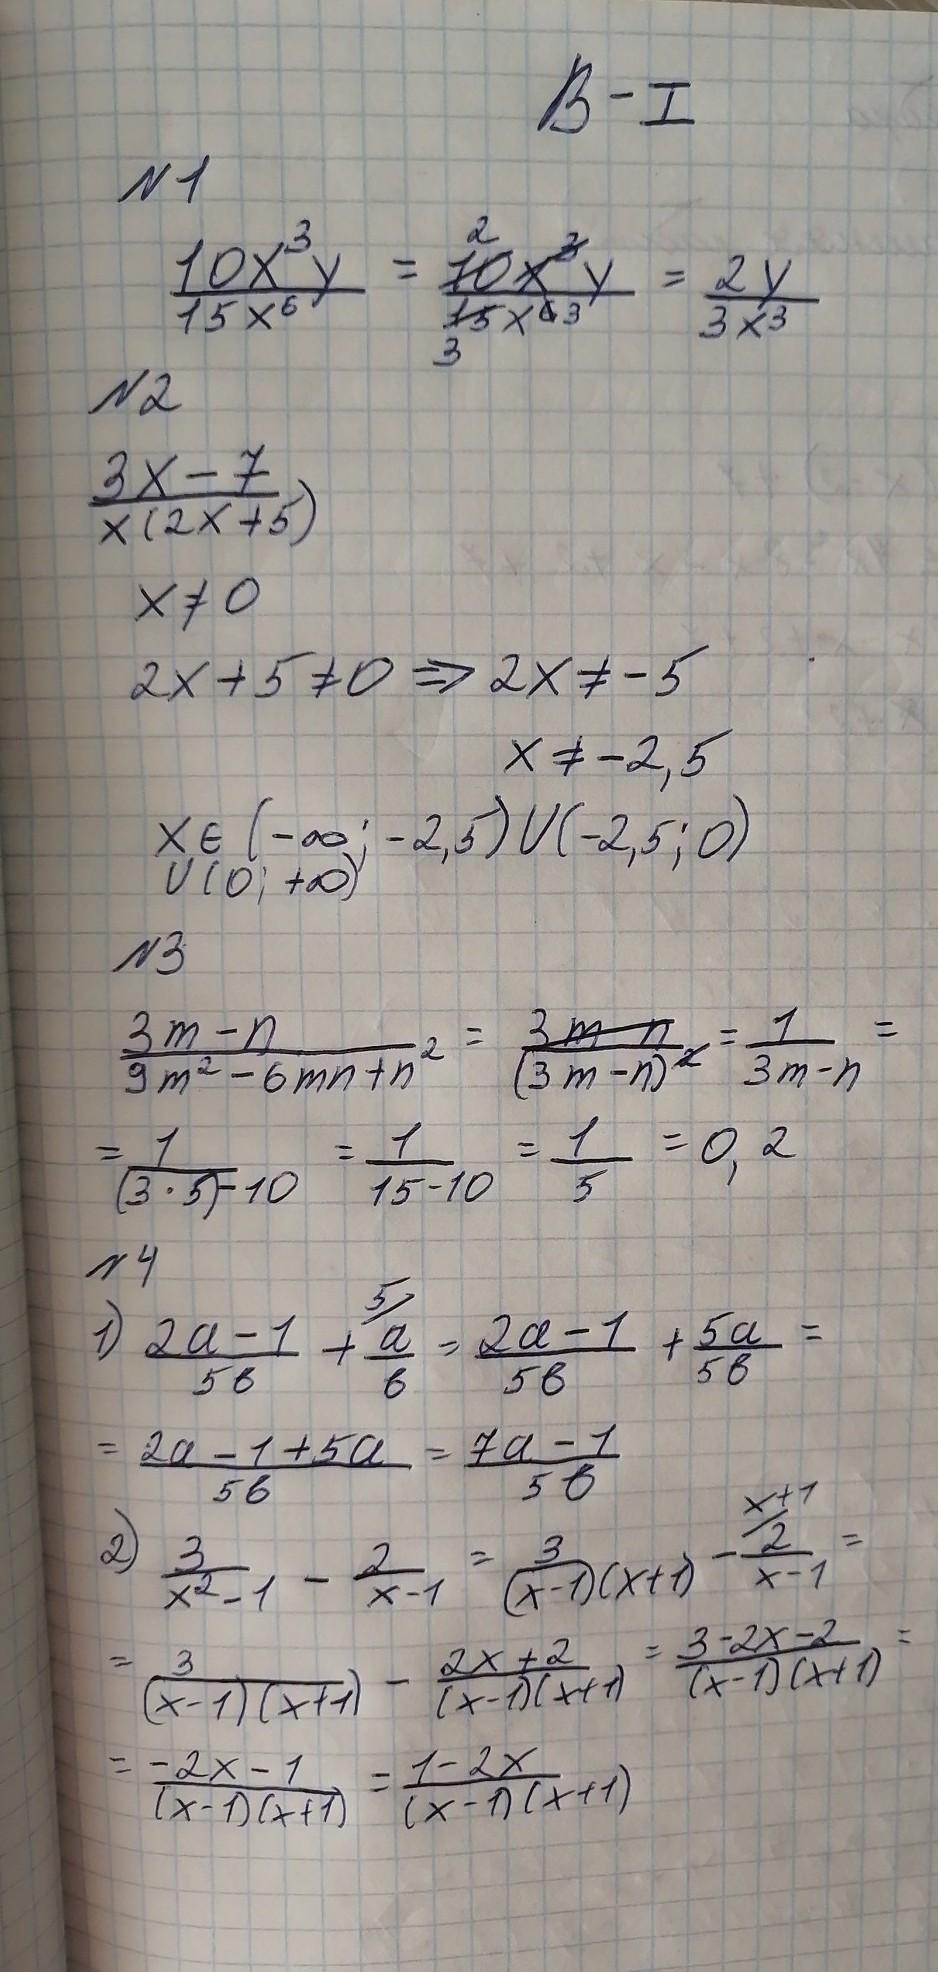 В-I
N1
10x³y/15x⁶ = 10x³y/15x⁶ 2 3 3 = 2y/3x³
N2
3x-7/x(2x+5)
x≠0
2x+5≠0 => 2x≠-5
x≠-2,5
x∈(-∞; -2,5)U(-2,5; 0)
U(0; +∞)
N3
3m-n/9m²-6mn+n² = 3m-n/(3m-n)² = 1/3m-n =
= 1/(3·5)-10 = 1/15-10 = 1/5 = 0,2
N4
1) 2a-1/5в + a/в 5/ = 2a-1/5в + 5a/5в =
= 2a-1+5a/5в = 7a-1/5в
2) 3/x²-1 - 2/x-1 = 3/(x-1)(x+1) - 2/x-1 x+1/ =
= 3/(x-1)(x+1) - 2x+2/(x-1)(x+1) = 3-2x-2/(x-1)(x+1) =
= -2x-1/(x-1)(x+1) = 1-2x/(x-1)(x+1)